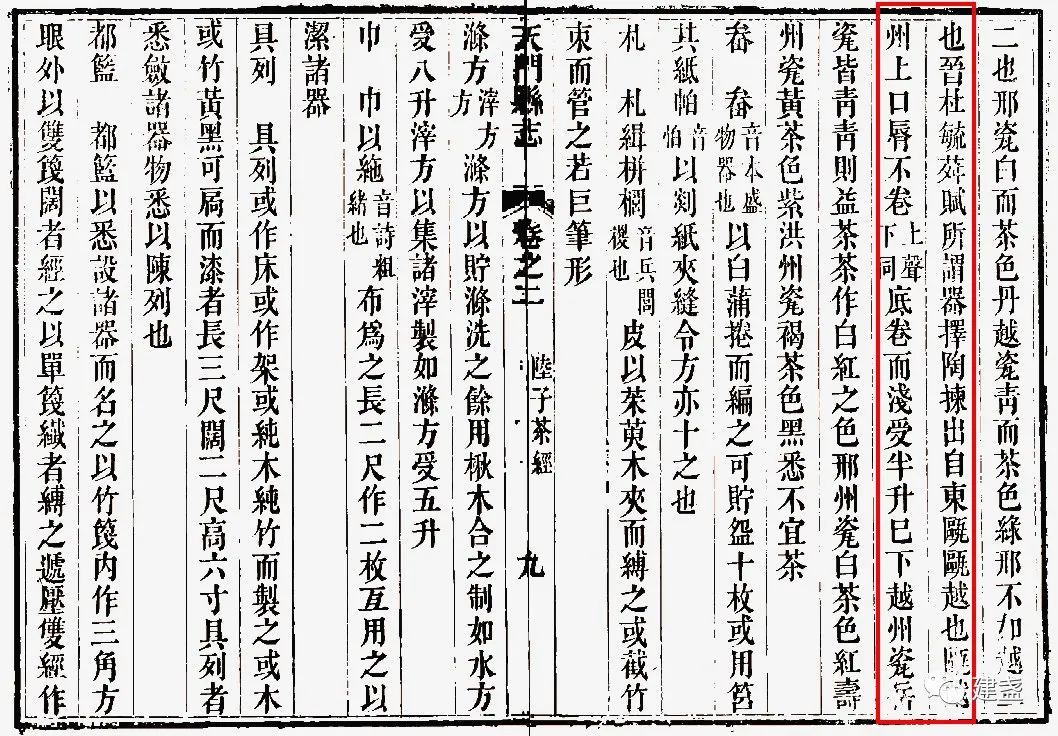 二也邢瓷白而茶色丹越瓷青而茶色綠邢不如越
也晉杜毓荈賦所謂器擇陶揀出自東甌甌越也甌
州上口唇不卷上聲下同底卷而淺受半升巳下越州瓷岳
瓷皆青青則益茶茶作白紅之色邢州瓷白茶色紅壽
州瓷黃茶色紫洪州瓷褐茶色黑悉不宜茶
畚 畚音本盛物器也以白蒲捲而編之可貯盌十枚或用筥
其紙帕音怕以剡紙夾縫令方亦十之也
札 札緝栟櫚音兵閭椶也皮以茱萸木夾而縛之或截竹
束而管之若巨筆形
天門縣志 卷之二 陸子茶經 九
滌方滓方方滌方以貯滌洗之餘用楸木合之制如水方
受八升滓方以集諸滓製如滌方受五升
巾 巾以絁音詩粗緒也布爲之長二尺作二枚互用之以
潔諸器
具列 具列或作床或作架或純木純竹而製之或木
或竹黃黑可扃而漆者長三尺闊二尺高六寸具列者
悉斂諸器物悉以陳列也
都籃 都籃以悉設諸器而名之以竹篾內作三角方
眼外以雙篾闊者經之以單篾纖者縛之遞壓雙經作
建盞